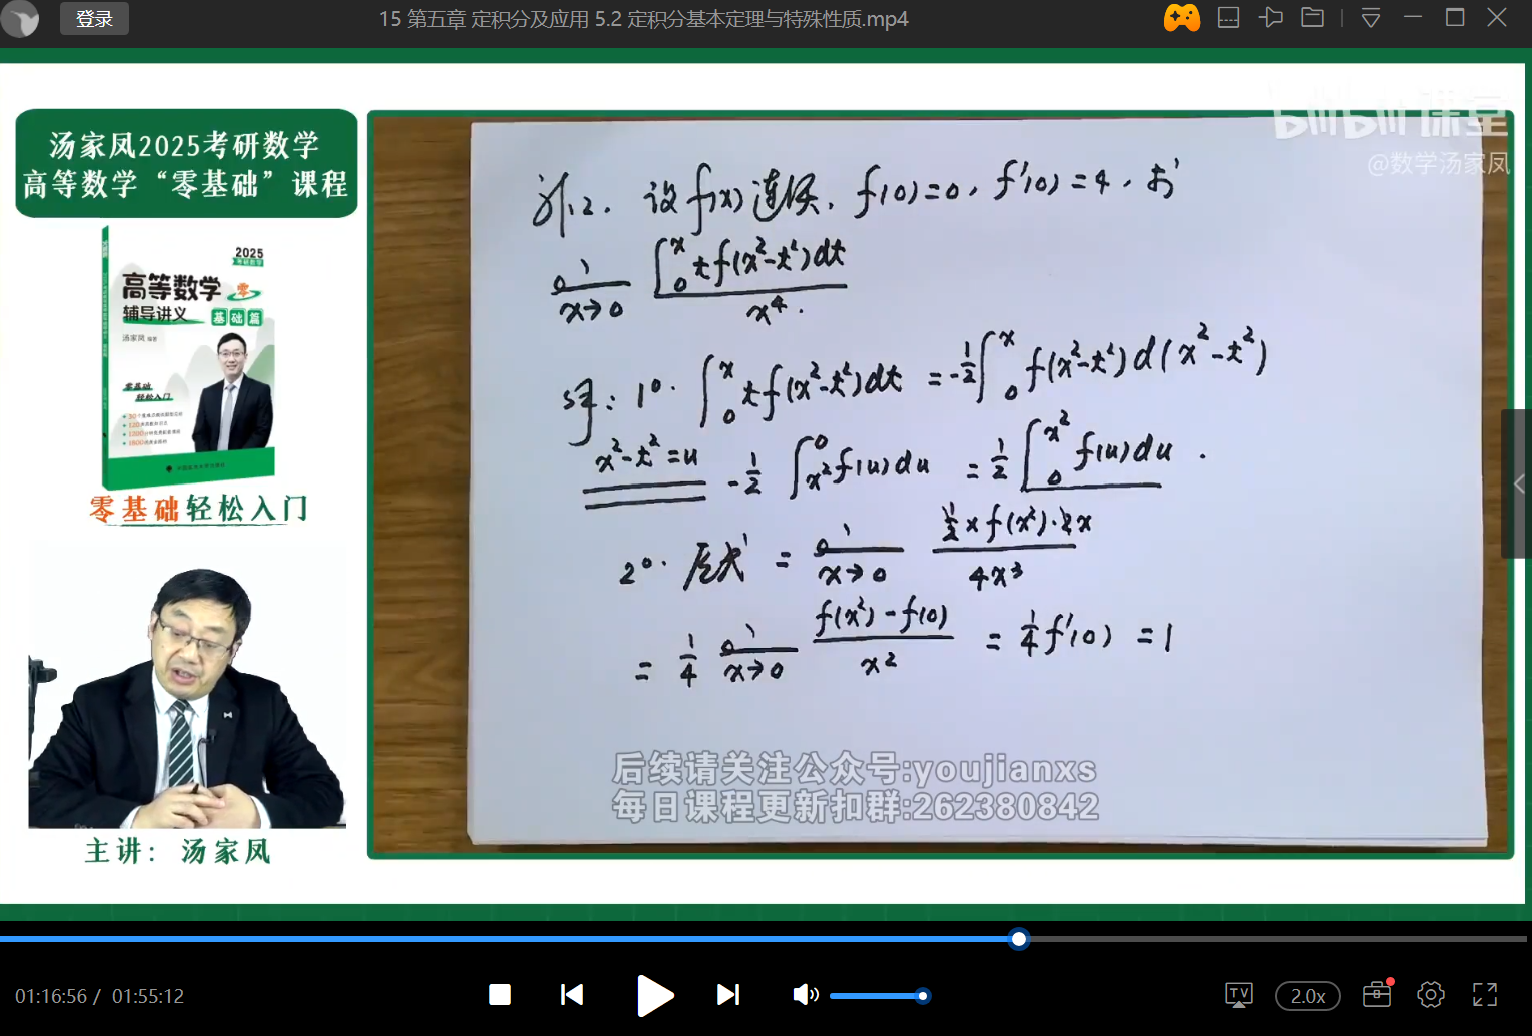 登录
15 第五章 定积分及应用 5.2 定积分基本定理与特殊性质.mp4
汤家凤2025考研数学
高等数学“零基础”课程
2025
高等数学 零
辅导讲义 基础篇
汤家凤
零基础
轻松入门
零基础轻松入门
主讲：汤家凤
bilibili课堂
@数学汤家凤
例2. 设 f(x) 连续, f(0)=0, f'(0)=4, 求
lim x→0 ∫₀ˣ t f(x²-t²)dt / x⁴.
解: 1°. ∫₀ˣ t f(x²-t²)dt = -1/2 ∫₀ˣ f(x²-t²)d(x²-t²)
x²-t²=u -1/2 ∫_{x²}^0 f(u)du = 1/2 ∫₀^{x²} f(u)du.
2°. 原式 = lim x→0 1/2 × f(x²)·2x / 4x³
= 1/4 lim x→0 f(x²)-f(0) / x² = 1/4 f'(0) = 1
后续请关注公众号:youjianxs
每日课程更新扣群:262380842
01:16:56 / 01:55:12
TV
2.0x